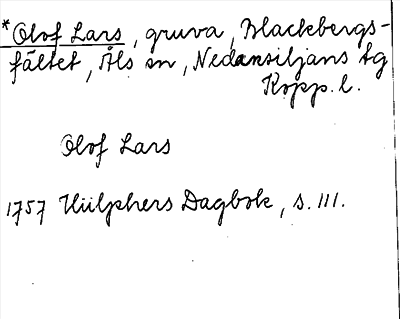 *Olof Lars, gruva, Blackbergs-
fältet, Åls sn, Nedansiljans tg
Kopp. l.
Olof Lars
1757 Hülphers Dagbok, s. 111.